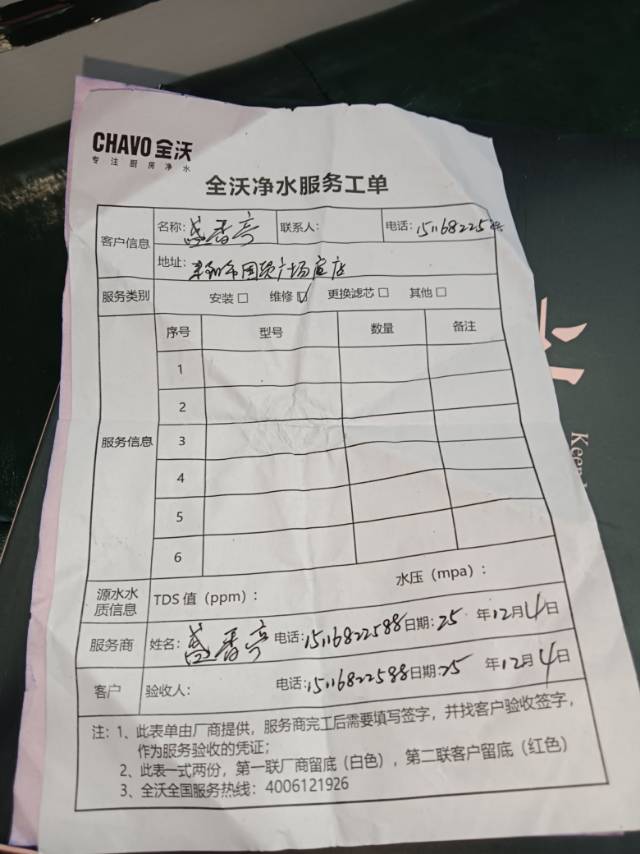 CHAVO 全沃
专注厨房净水
全沃净水服务工单
客户信息 名称：盛香亭 联系人： 电话：151168225
地址：国颐广场店
服务类别 安装□ 维修☑ 更换滤芯□ 其他□
服务信息 序号 型号 数量 备注
1
2
3
4
5
6
源水水质信息 TDS 值（ppm）： 水压（mpa）：
服务商 姓名：盛香亭 电话：15116822588 日期：25 年12月4日
客户 验收人： 电话：15116822588 日期：25 年12月4日
注：1、此表单由厂商提供，服务商完工后需要填写签字，并找客户验收签字，
作为服务验收的凭证；
2、此表一式两份，第一联厂商留底（白色），第二联客户留底（红色）
3、全沃全国服务热线：4006121926
Keen